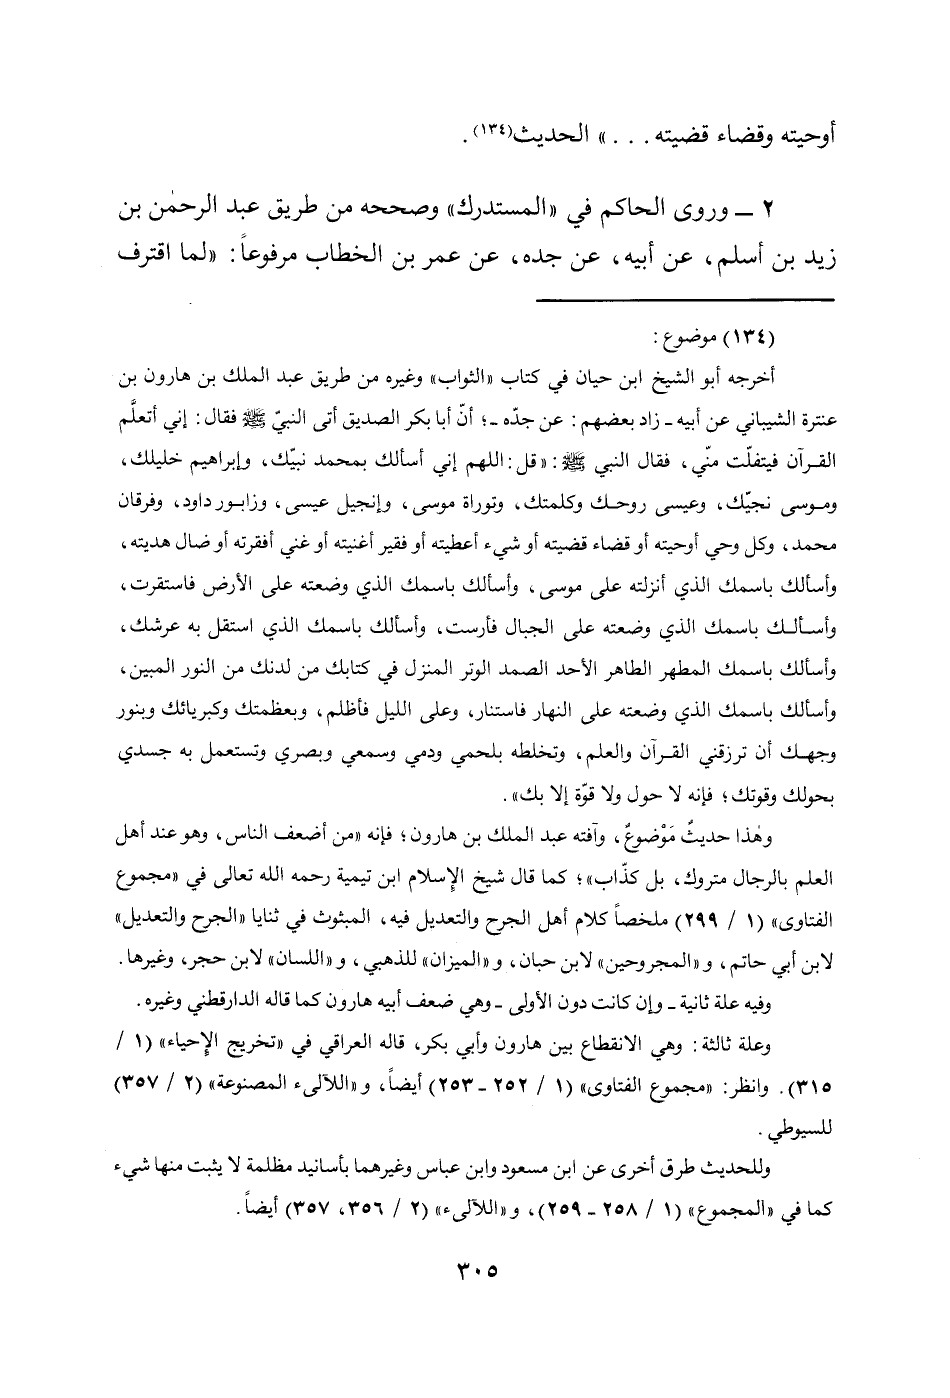 أوحيته وقضاء قضيته . . . » الحديث(١٣٤).
٢ ــ وروى الحاكم في «المستدرك» وصححه من طريق عبد الرحمٰن بن
زيد بن أسلم، عن أبيه، عن جده، عن عمر بن الخطاب مرفوعاً: «لما اقترف
(١٣٤) موضوع:
أخرجه أبو الشيخ ابن حيان في كتاب «الثواب» وغيره من طريق عبد الملك بن هارون بن
عنترة الشيباني عن أبيه ـ زاد بعضهم: عن جدّه ـ؛ أنّ أبا بكر الصديق أتى النبيّ ﷺ فقال: إني أتعلَّم
القرآن فيتفلّت منّي، فقال النبي ﷺ: «قل: اللهم إني أسألك بمحمد نبيّك، وإبراهيم خليلك،
وموسى نجيّك، وعيسى روحك وكلمتك، وتوراة موسى، وإنجيل عيسى، وزابور داود، وفرقان
محمد، وكل وحي أوحيته أو قضاء قضيته أو شيء أعطيته أو فقير أغنيته أو غني أفقرته أو ضال هديته،
وأسألك باسمك الذي أنزلته على موسى، وأسألك باسمك الذي وضعته على الأرض فاستقرت،
وأسألك باسمك الذي وضعته على الجبال فأرست، وأسألك باسمك الذي استقل به عرشك،
وأسألك باسمك المطهر الطاهر الأحد الصمد الوتر المنزل في كتابك من لدنك من النور المبين،
وأسألك باسمك الذي وضعته على النهار فاستنار، وعلى الليل فأظلم، وبعظمتك وكبريائك وبنور
وجهك أن ترزقني القرآن والعلم، وتخلطه بلحمي ودمي وسمعي وبصري وتستعمل به جسدي
بحولك وقوتك؛ فإنه لا حول ولا قوّة إلا بك».
وهٰذا حديثٌ مَوْضوعٌ، وآفته عبد الملك بن هارون؛ فإنه «من أضعف الناس، وهو عند أهل
العلم بالرجال متروك، بل كذّاب»؛ كما قال شيخ الإسلام ابن تيمية رحمه الله تعالى في «مجموع
الفتاوى» (١ / ٢٩٩) ملخصاً كلام أهل الجرح والتعديل فيه، المبثوث في ثنايا «الجرح والتعديل»
لابن أبي حاتم، و «المجروحين» لابن حبان، و «الميزان» للذهبي، و «اللسان» لابن حجر، وغيرها.
وفيه علة ثانية ـ وإن كانت دون الأولى ـ وهي ضعف أبيه هارون كما قاله الدارقطني وغيره.
وعلة ثالثة: وهي الانقطاع بين هارون وأبي بكر، قاله العراقي في «تخريج الإحياء» (١ /
٣١٥). وانظر: «مجموع الفتاوى» (١ / ٢٥٢ ـ ٢٥٣) أيضاً، و «اللآلىء المصنوعة» (٢ / ٣٥٧)
للسيوطي.
وللحديث طرق أخرى عن ابن مسعود وابن عباس وغيرهما بأسانيد مظلمة لا يثبت منها شيء
كما في «المجموع» (١ / ٢٥٨ ـ ٢٥٩)، و «اللآلىء» (٢ / ٣٥٦، ٣٥٧) أيضاً.
٣٠٥